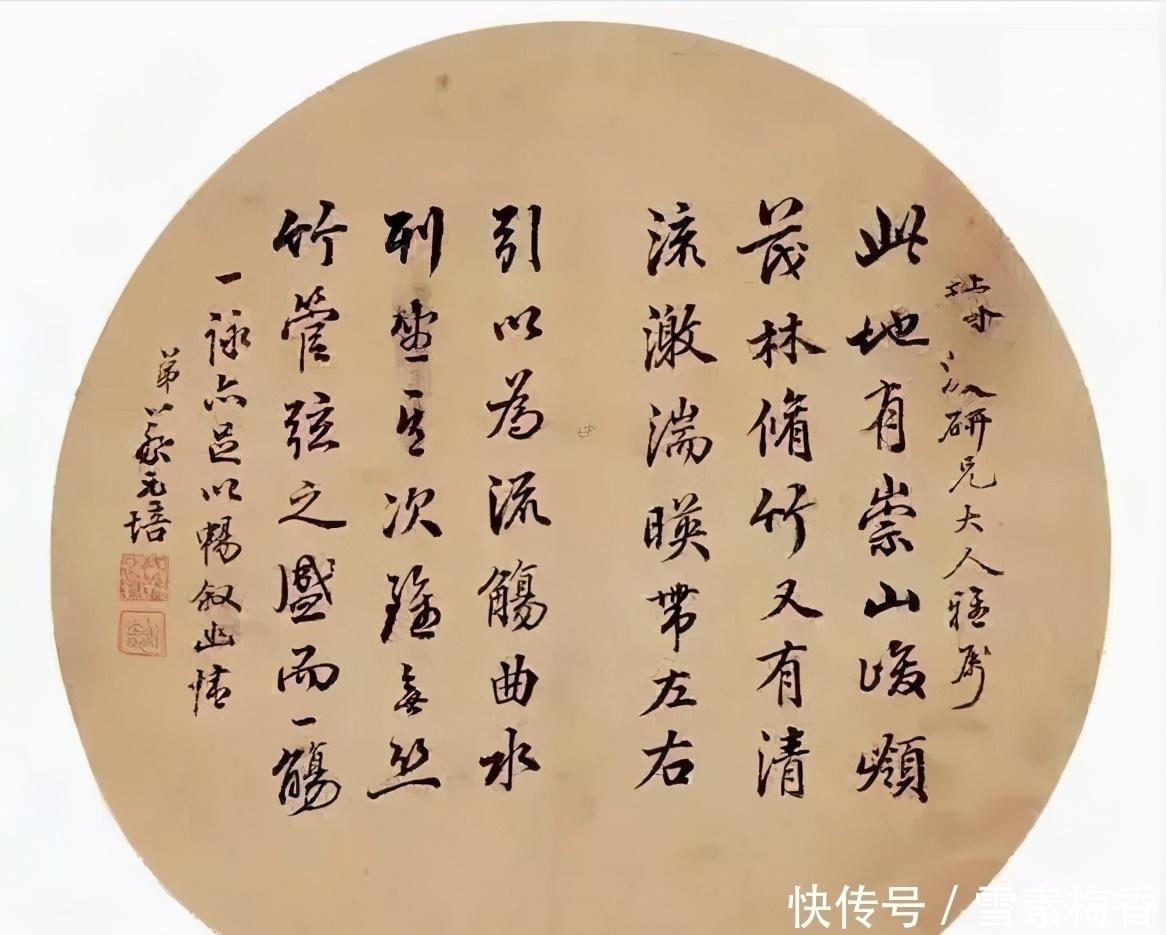 研兄大人雅属
此地有崇山峻領
茂林脩竹又有清
流激湍暎帶左右
引以為流觴曲水
列坐其次雖無丝
竹管弦之盛而一觴
一詠亦足以暢叙幽情
弟蔡元培
快传号 / 雪素梅香